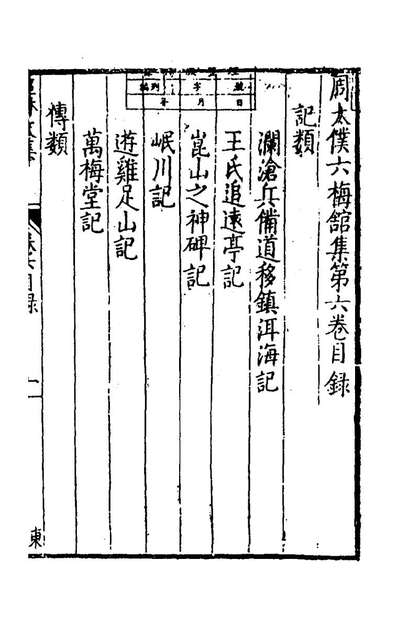 周太僕六梅館集第六卷目録
記類
瀾滄兵備道移鎮洱海記
王氏追遠亭記
崑山之神碑記
岷川記
遊雞足山記
萬梅堂記
傳類
東